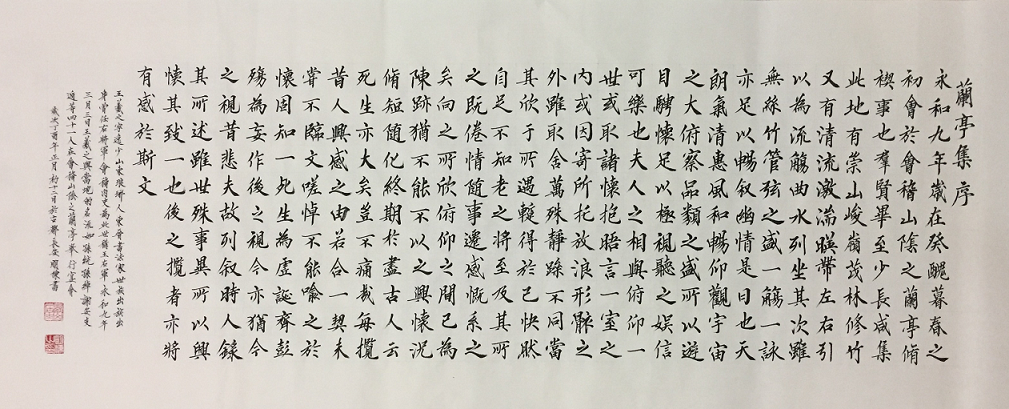 蘭亭集序
永和九年歲在癸醜暮春之
初會於會稽山陰之蘭亭脩
禊事也羣賢畢至少長咸集
此地有崇山峻嶺茂林修竹
又有清流激湍暎帶左右引
以為流觴曲水列坐其次雖
無絲竹管弦之盛一觴一詠
亦足以暢叙幽情是日也天
朗氣清惠風和暢仰觀宇宙
之大俯察品類之盛所以遊
目騁懷足以極視聽之娛信
可樂也夫人之相與俯仰一
世或取諸懷抱晤言一室之
内或因寄所托放浪形骸之
外雖取舍萬殊靜躁不同當
其欣于所遇輕得於己快然
自足不知老之將至及其所
之既倦情隨事遷感慨系之
矣向之所欣俯仰之間已為
陳跡猶不能不以之興懷況
脩短隨化終期於盡古人云
死生亦大矣豈不痛哉每攬
昔人興感之由若合一契未
嘗不臨文嗟悼不能喻之於
懷固知一死生為虛誕齊彭
殤為妄作後之視今亦猶今
之視昔悲夫故列叙時人錄
其所述雖世殊事異所以興
懷其致一也後之攬者亦將
有感於斯文
王羲之字逸少山東瑯琊人東晉書法家世
軍會稽世稱王右軍永和九年
三月三日王羲之與當現的名流如孫統孫綽謝安支
遁等四十一人在會稽山陰之蘭亭舉行
歲次丁酉年正月初十二日於古都長安書